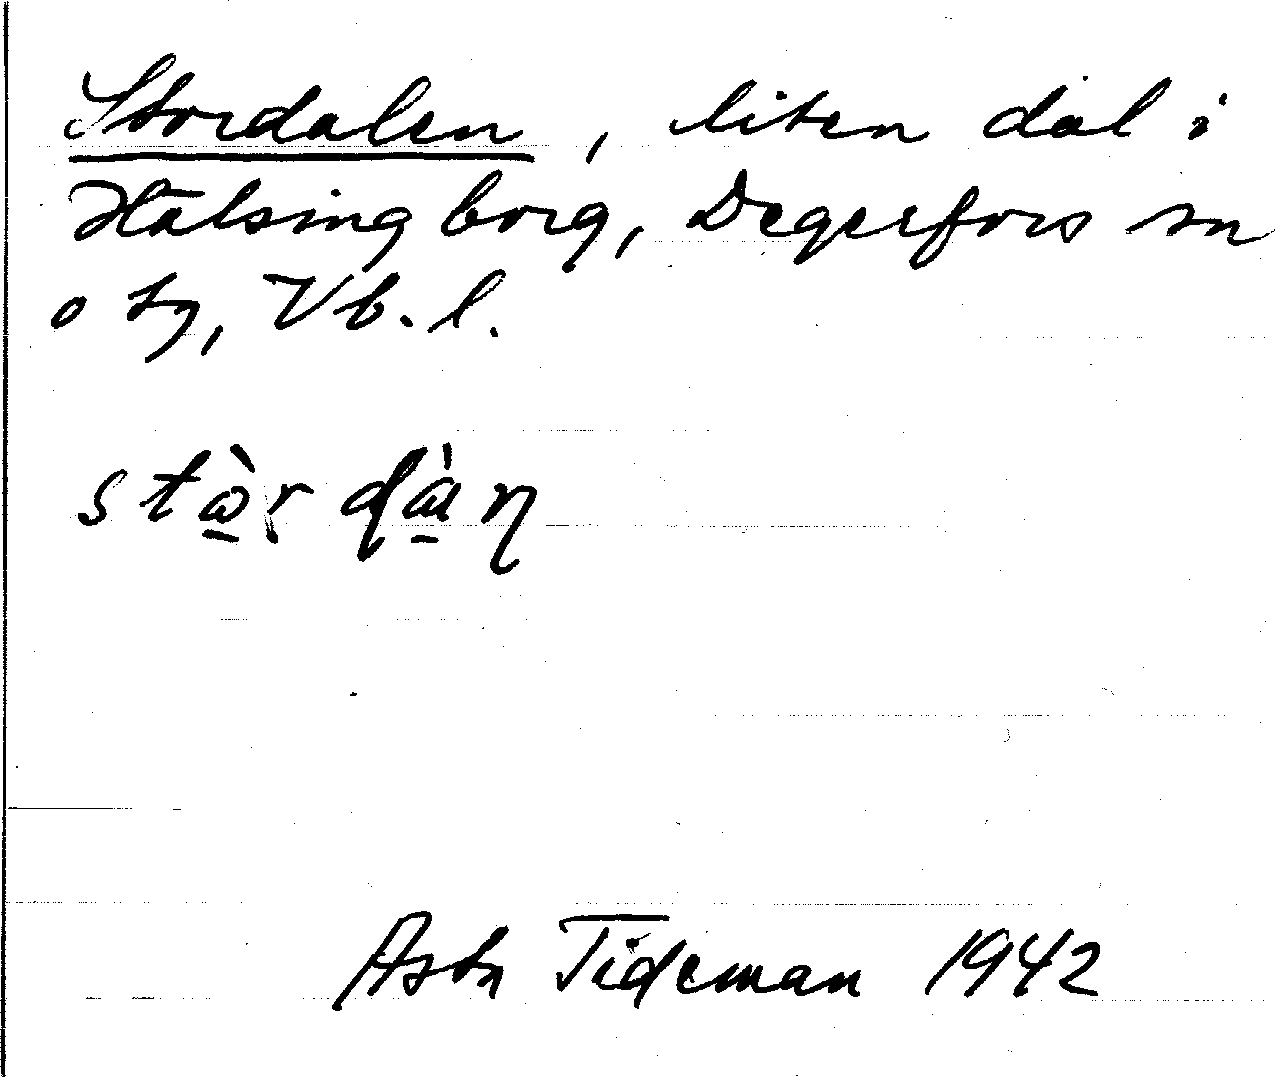 Stordalen, liten dal i
Hälsingborg, Degerfors sn
o tg, Vb. l.
Asta Tideman 1942